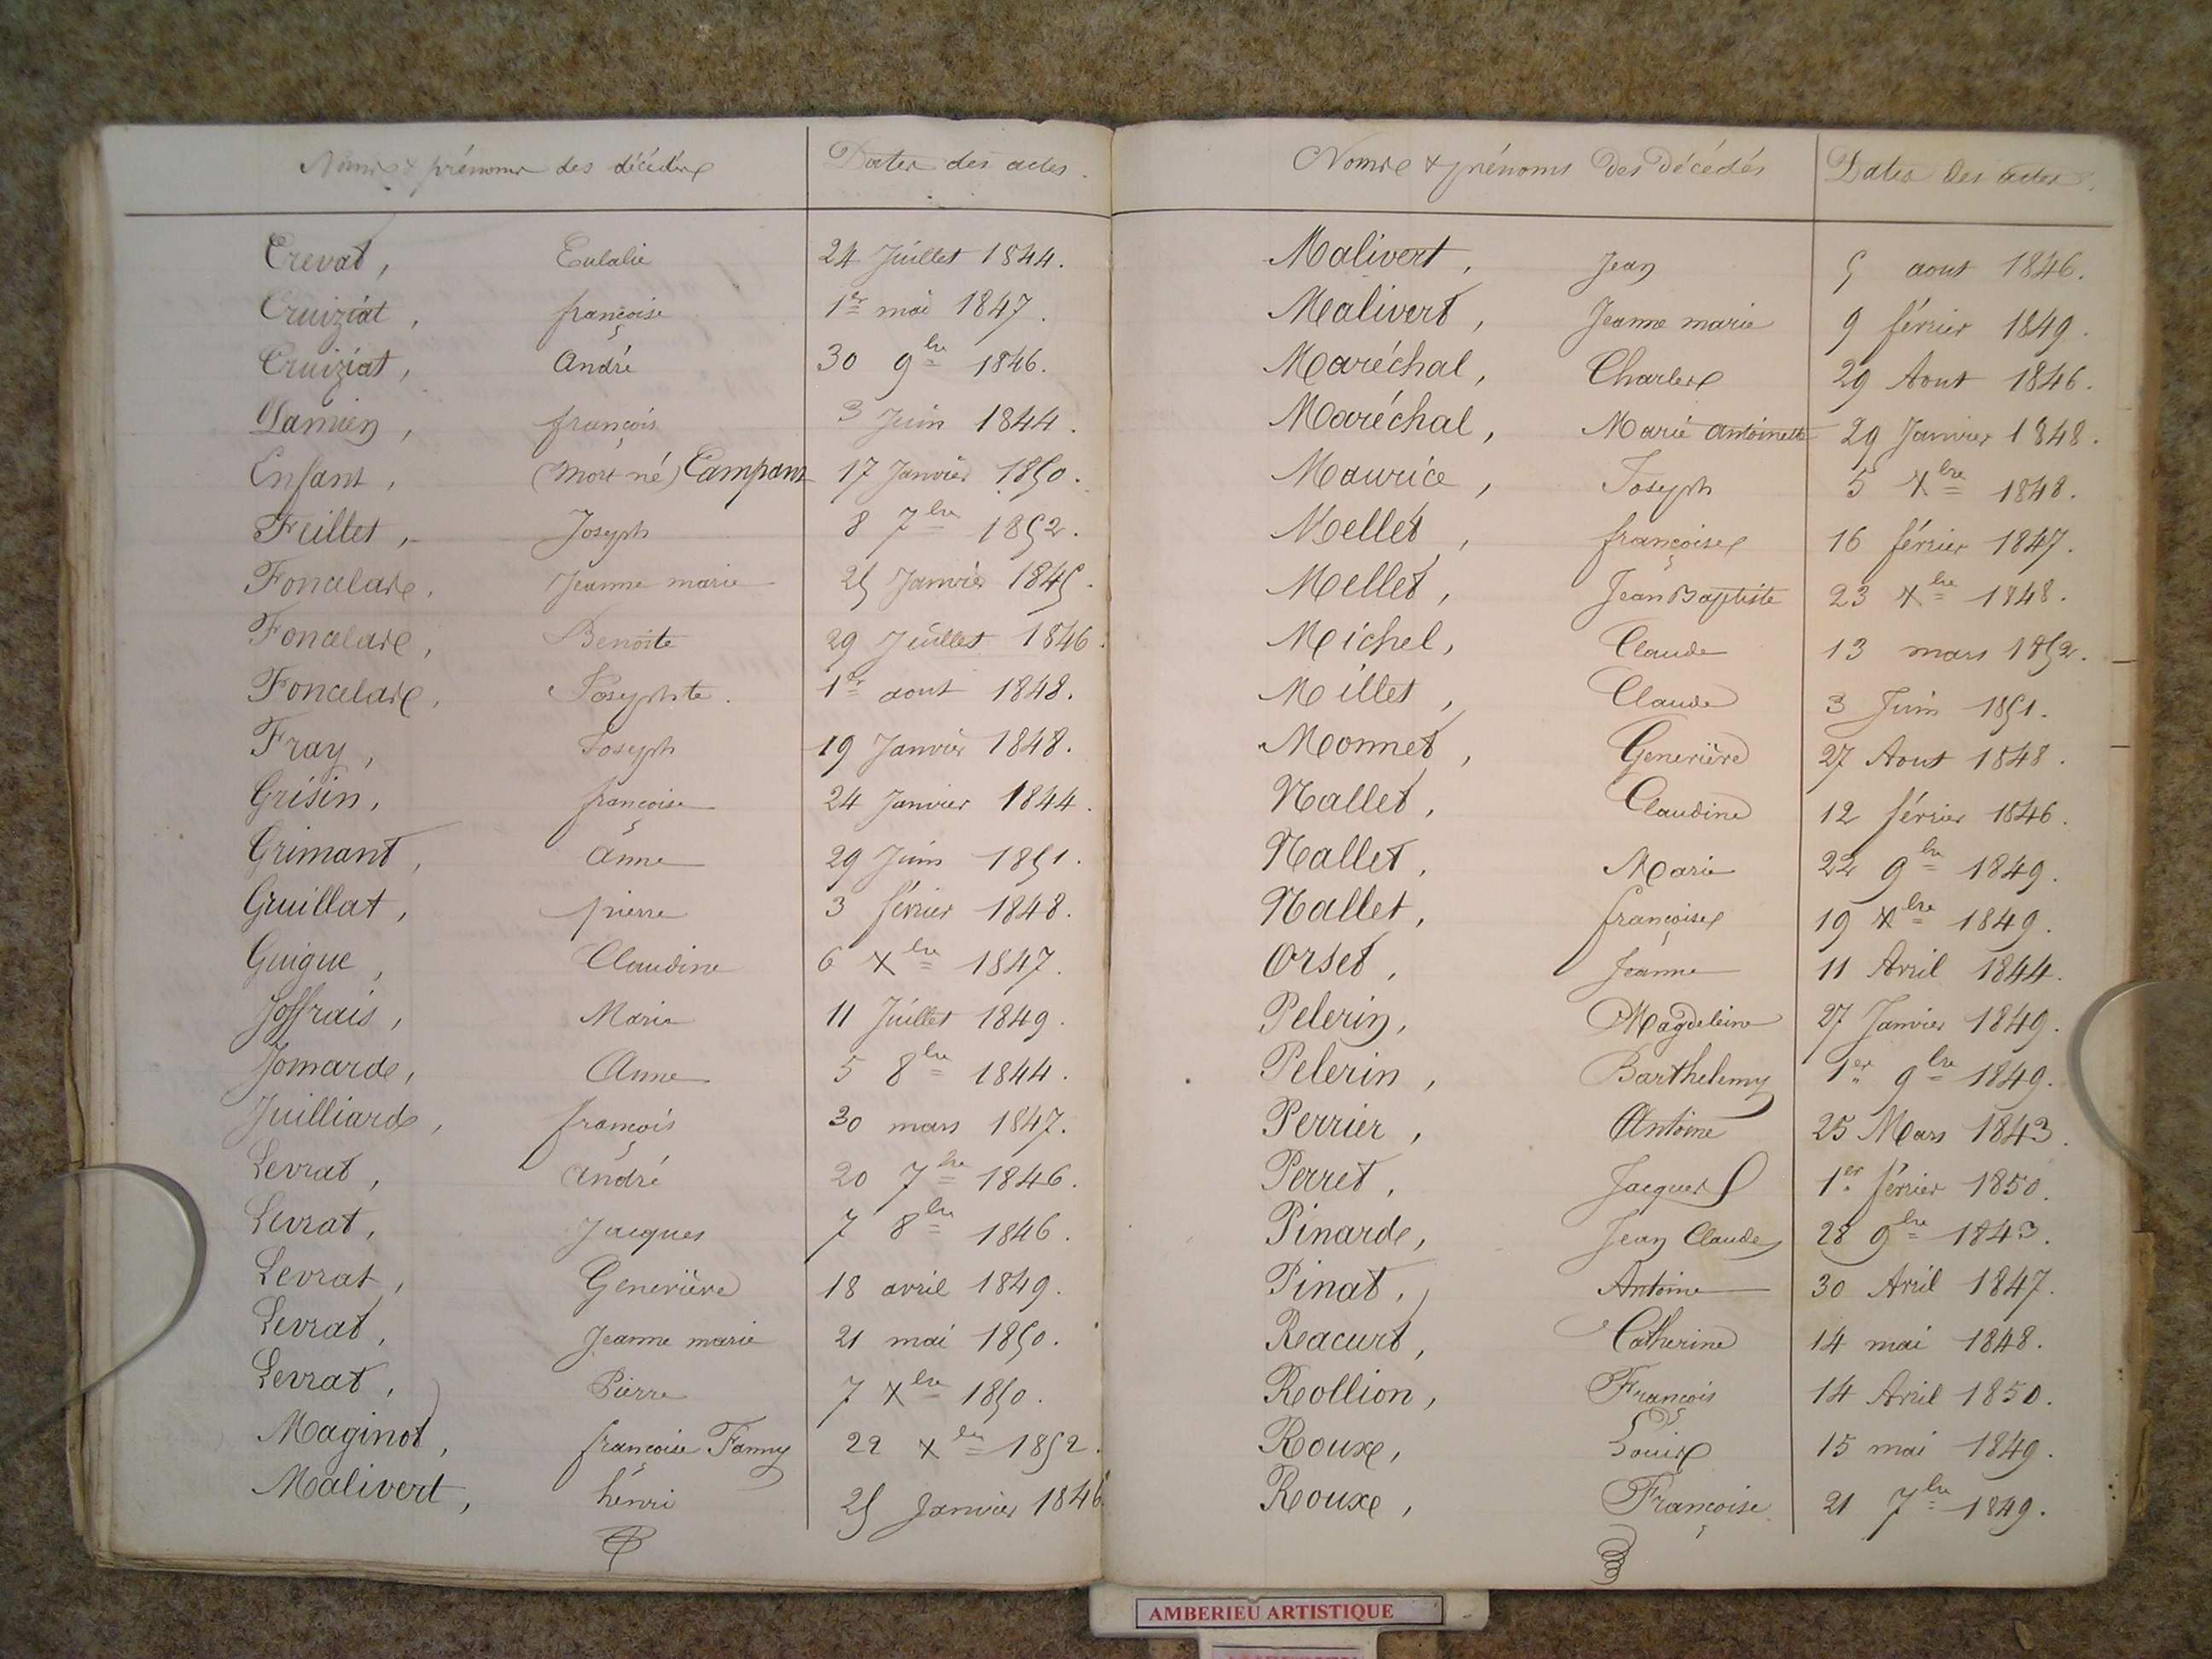 Noms & prénoms des décédés Dates des actes.
Crevat, Eulalie 24 Juillet 1844.
Cruiziat, françoise 1er mai 1847.
Cruiziat, André 30 9bre 1846.
Damien, françois 3 Juin 1844.
Enfant, (Mort né) Campant 17 Janvier 1850.
Feillet, Joseph 8 7bre 1852.
Foncelard, Jeanne marie 25 Janvier 1845.
Foncelard, Benoite 29 Juillet 1846.
Foncelard, Josephte. 1er aout 1848.
Fray, Joseph 19 Janvier 1848.
Grisin, françoise 24 Janvier 1844.
Grimant, Anne 29 Juin 1851.
Gruillat, pierre 3 février 1848.
Guigue, Claudine 6 Xbre 1847.
Joffrais, Marie 11 Juillet 1849.
Jomard, Anne 5 8bre 1844.
Juilliard, françois 30 mars 1847.
Levrat, André 20 7bre 1846.
Levrat, Jacques 7 8bre 1846.
Levrat, Geneviève 18 avril 1849.
Levrat, Jeanne marie 21 mai 1850.
Levrat, Pierre 7 Xbre 1850.
Maginot, françoise Fanny 22 Xbre 1852.
Malivert, henri 25 Janvier 1846
Noms & prénoms des décédés Dates des actes.
Malivert, Jean 5 aout 1846.
Malivert, Jeanne marie 9 février 1849.
Maréchal, Charles 29 Aout 1846.
Maréchal, Marie antoinette 29 Janvier 1848.
Maurice, Joseph 5 Xbre 1848.
Mellet, françoise 16 février 1847.
Mellet, Jean Baptiste 23 Xbre 1848.
Michel, Claude 13 mars 1852.
Millet, Claude 3 Juin 1851.
Monnet, Geneviève 27 Aout 1848.
Nallet, Claudine 12 février 1846.
Nallet, Marie 22 9bre 1849.
Nallet, françoise 19 Xbre 1849.
Orset, Jeanne 11 Avril 1844.
Pelerin, Magdeleine 27 Janvier 1849.
Pelerin, Barthelemy 1er 9bre 1849.
Perrier, Antoine 25 Mars 1843.
Perret, Jacques 1er février 1850.
Pinard, Jean Claude 28 9bre 1843.
Pinat, Antoine 30 Avril 1847.
Racurt, Catherine 14 mai 1848.
Rollion, François 14 Avril 1850.
Roux, Louis 15 mai 1849.
Roux, Françoise 21 7bre 1849.
AMBERIEU ARTISTIQUE